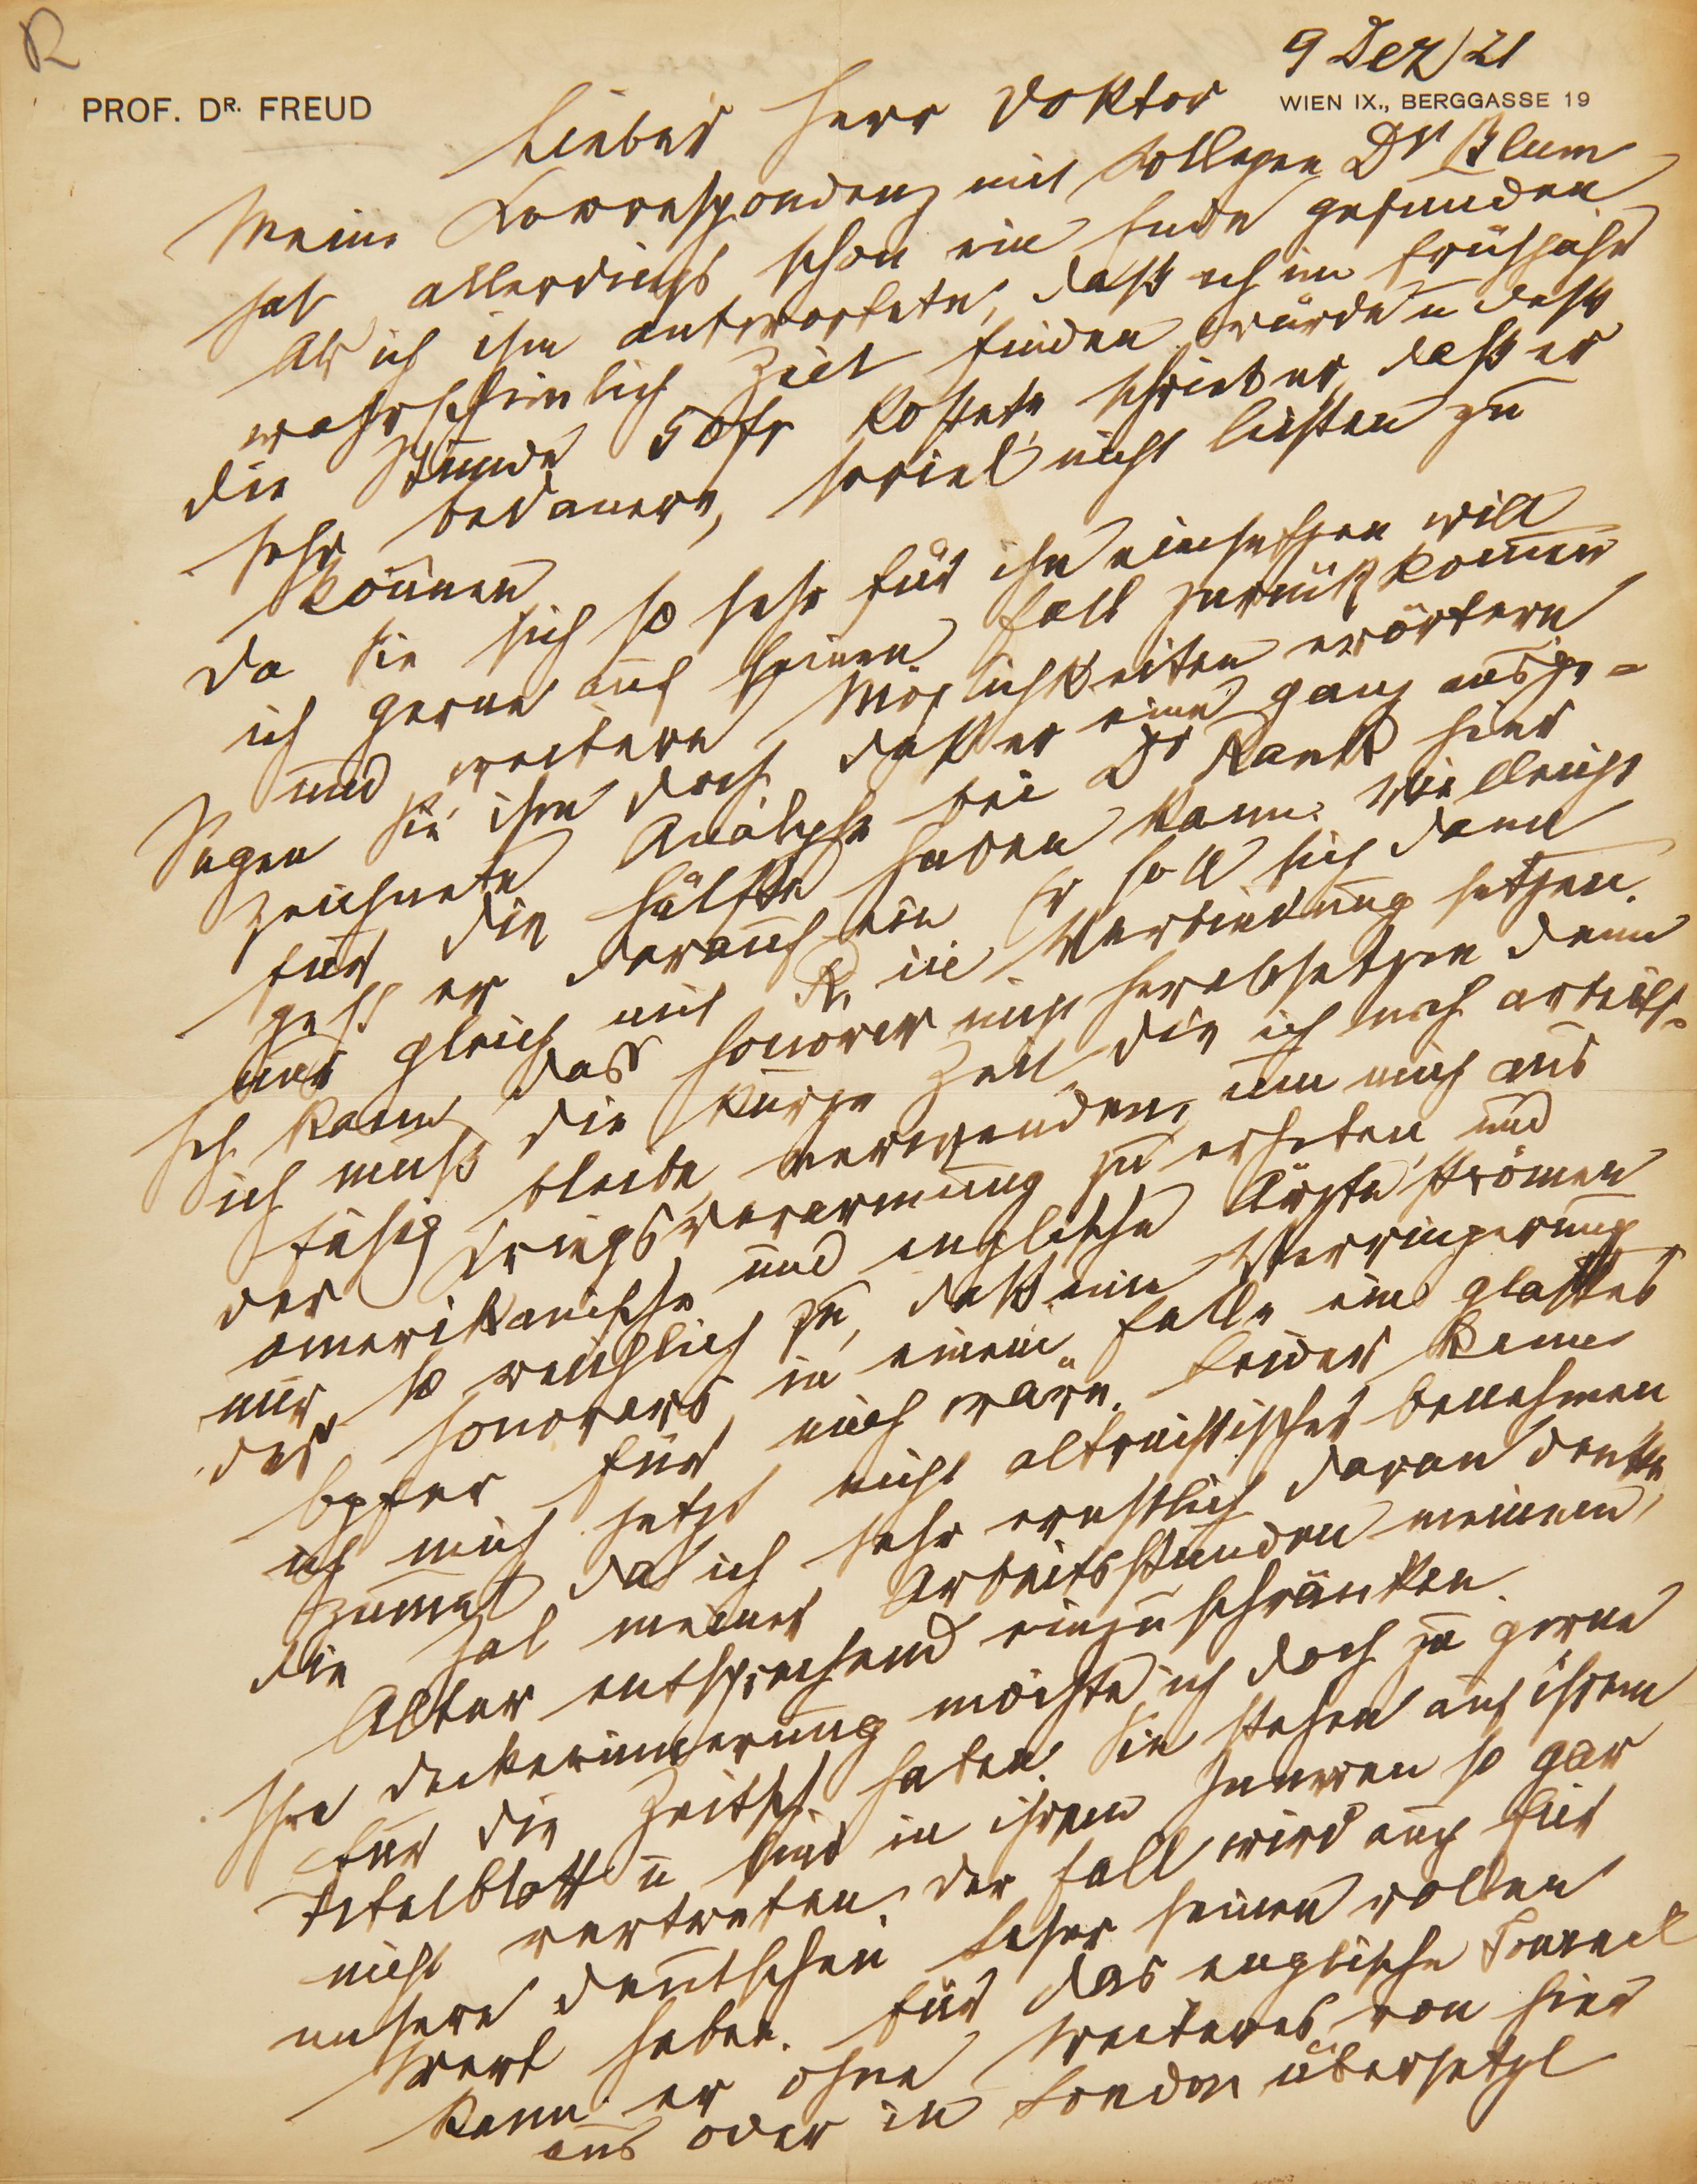 R
9 Dez 21
PROF. DR. FREUD
WIEN IX., BERGGASSE 19
Lieber Herr Doktor
Meine Korrespondenz mit Kollegen Dr Blum
hat allerdings schon ein Ende gefunden
Als ich ihm antwortete, daß ich im Frühjahr
wahrscheinlich Zeit finden würde u daß
die Stunde 50 fr kostete, schrieb er, daß er
sehr bedauere, soviel nicht leisten zu
können
Da Sie sich so sehr für ihn einsetzen will
ich gerne auf seinen Fall zurückkommen
und weitere Möglichkeiten erörtern
Sagen Sie ihm doch, daß er eine ganz ausge-
zeichnete Analyse bei Dr Rank hier
für die Hälfte haben kann. Vielleicht
geht er darauf ein Er soll sich dann
nur gleich mit R. in Verbindung setzen.
Ich kann das Honorar nicht herabsetzen denn
ich muß die kurze Zeit, die ich noch arbeits-
fähig bleibe, verwenden, um mich aus
der Kriegsverarmung zu erheben, und
amerikanische und englische Ärzte strömen
mir so reichlich zu, daß eine Verringerung
des Honorars in einem Falle ein glattes
Opfer für mich wäre. Leider kann
ich mich jetzt nicht altruistischer benehmen
zumal da ich sehr ernstlich daran denke,
die Zal meiner Arbeitsstunden meinem
Alter entsprechend einzuschränken.
Ihre Deckerinnerung möchte ich doch zu gerne
für die Zeitsch. haben. Sie stehen auf ihrem
Titelblatt u sind in ihrem Inneren so gar
nicht vertreten. Der Fall wird auch für
unsere deutschen Leser seinen vollen
Wert haben. Für das englische Journal
kann er ohne weiteres von hier
aus oder in London übersetzt